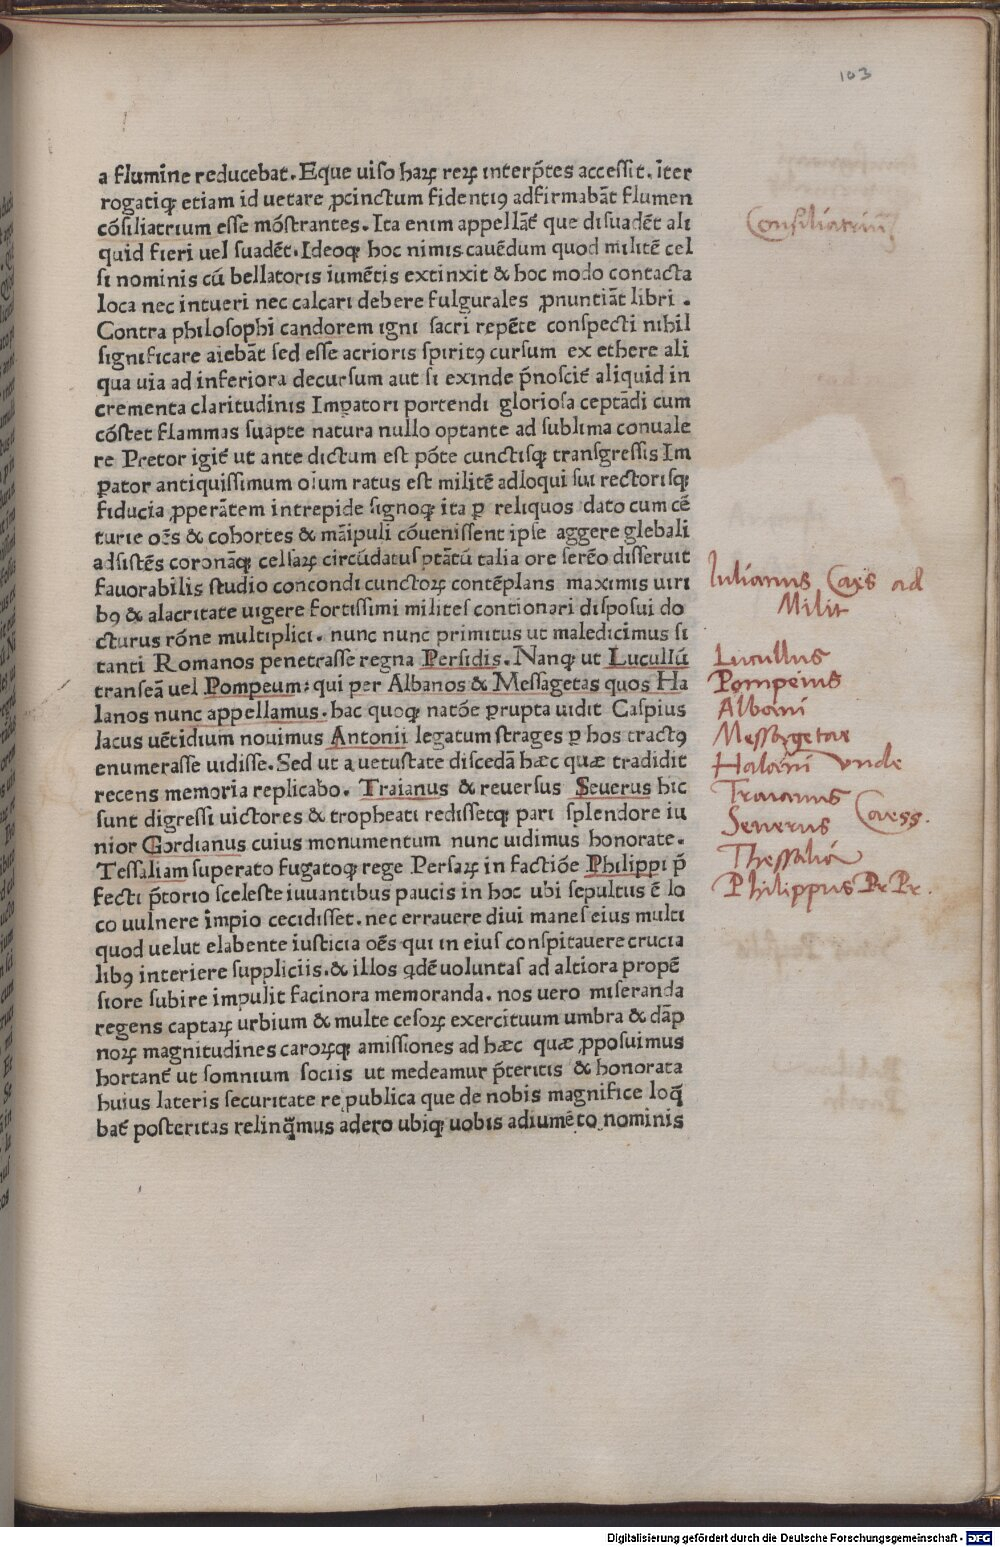 103
a flumine reducebat. Eque uiso haꝝ reꝝ interp̃tes accessit. iter
rogatiqꝫ etiam id uetare ꝓcinctum fidentiꝰ adfirmabãt flumen
cõsiliatrium esse mõstrantes. Ita enim appellãt̃ que disuadẽt ali
quid fieri uel suadẽt. Ideoqꝫ hoc nimis cauẽdum quod militẽ cel
si nominis cũ bellatoris iumẽtis extinxit & hoc modo contacta
loca nec intueri nec calcari debere fulgurales ꝓnuntiãt libri .
Contra philosophi candorem igni sacri repẽte conspecti nihil
significare aiebãt sed esse acrioris spiritꝰ cursum ex ethere ali
qua uia ad inferiora decursum aut si exinde p̃noscit̃ aliquid in
crementa claritudinis Imꝑatori portendi gloriosa ceptãdi cum
cõstet flammas suapte natura nullo optante ad sublima conuale
re Pretor igit̃ ut ante dictum est põte cunctisqꝫ transgressis Im
ꝑator antiquissimum oĩum ratus est militẽ adloqui sui rectorisqꝫ
fiducia ꝓperãtem intrepide signoqꝫ ita ꝑ reliquos dato cum cẽ
turie oẽs & cohortes & mãipuli cõuenissent ipse aggere glebali
adsistẽs coronãqꝫ celsaꝝ circũdatus ptãtũ talia ore serẽo disseruit
fauorabilis studio concondi cunctoꝝ contẽplans maximis uiri
bꝰ & alacritate uigere fortissimi milites contionari disposui do
cturus rõne multiplici. nunc nunc primitus ut maledicimus si
tanti Romanos penetrasse regna Persidis. Nanqꝫ ut Lucullũ
transeã uel Pompeum: qui per Albanos & Messagetas quos Ha
lanos nunc appellamus. hac quoqꝫ natõe ꝑrupta uidit Caspius
lacus uẽtidium nouimus Antonii legatum strages ꝑ hos tractꝰ
enumerasse uidisse. Sed ut a uetustate discedã hæc quæ tradidit
recens memoria replicabo. Traianus & reuersus Seuerus hic
sunt digressi uictores & tropheati redissetqꝫ pari splendore iu
nior Gordianus cuius monumentum nunc uidimus honorate.
Tessaliam superato fugatoqꝫ rege Persaꝝ in factiõe Philippi p̃
fecti p̃torio sceleste iuuantibus paucis in hoc ubi sepultus ẽ lo
co uulnere impio cecidisset. nec errauere diui manes eius multi
quod uelut elabente iusticia oẽs qui in eius conspitauere crucia
libꝰ interiere suppliciis. & illos qdẽ uoluntas ad altiora propẽ
siore subire impulit facinora memoranda. nos uero miseranda
regens captaꝝ urbium & multe cesoꝝ exercituum umbra & dãp
noꝝ magnitudines caroꝝqꝫ amissiones ad hæc quæ ꝓposuimus
hortant̃ ut somnium sociis ut medeamur p̃teritis & honorata
huius lateris securitate re publica que de nobis magnifice loq̃
bat̃ posteritas relinq̃mus adero ubiqꝫ uobis adiumẽto nominis
Consiliatriũ
Iulianus Caes ad
Milit
Lucullus
Pompeius
Albani
Messagetae
Halani vnde
Traianus
Seuerus Caess.
Thessalia
Philippus Pr Pr.
Digitalisierung gefördert durch die Deutsche Forschungsgemeinschaft - DFG